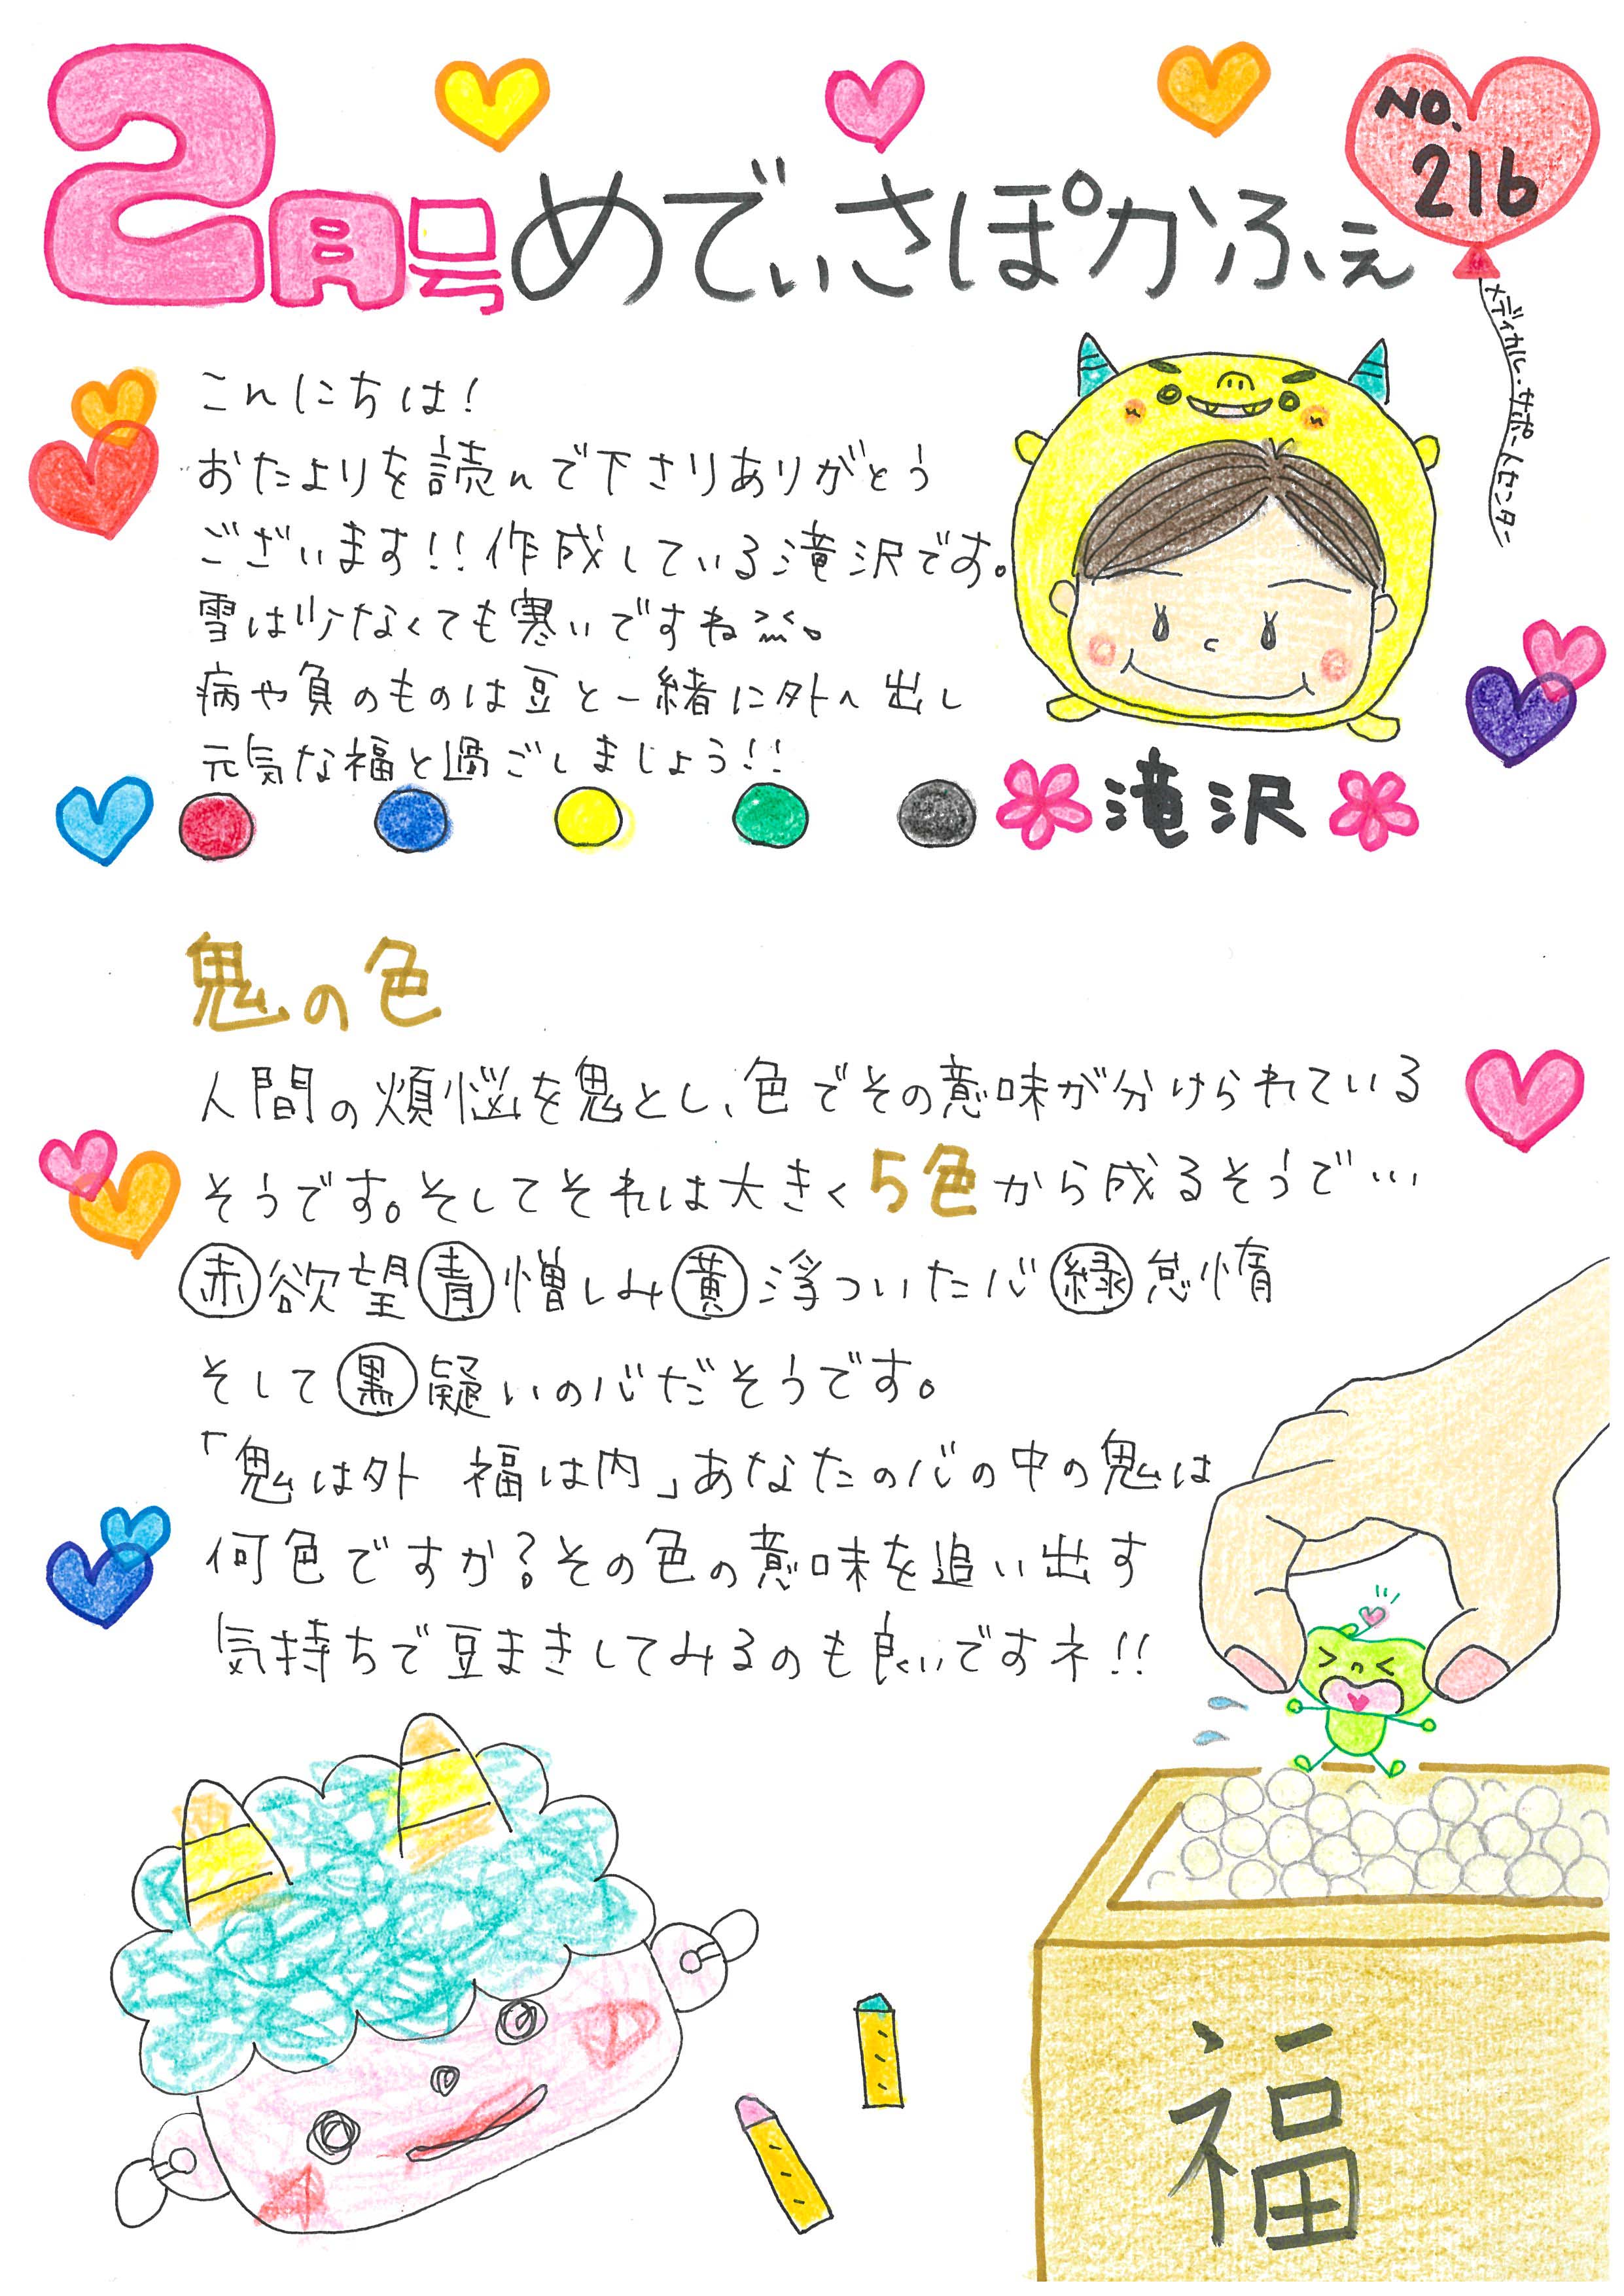 2月号 めでぃさぽかふぇ
NO.
216
メディカル・サポートセンター
こんにちは!
おたよりを読んで下さりありがとう
ございます!!作成している滝沢です。
雪は少なくても寒いですね。
病や負のものは豆と一緒に外へ出し
元気な福と過ごしましょう!!
滝沢
鬼の色
人間の煩悩を鬼とし、色でその意味が分けられている
そうです。そしてそれは大きく5色から成るそうで…
赤欲望青憎しみ黄浮ついた心緑怠惰
そして黒疑いの心だそうです。
「鬼は外 福は内」あなたの心の中の鬼は
何色ですか?その色の意味を追い出す
気持ちで豆まきしてみるのも良いですネ!!
福